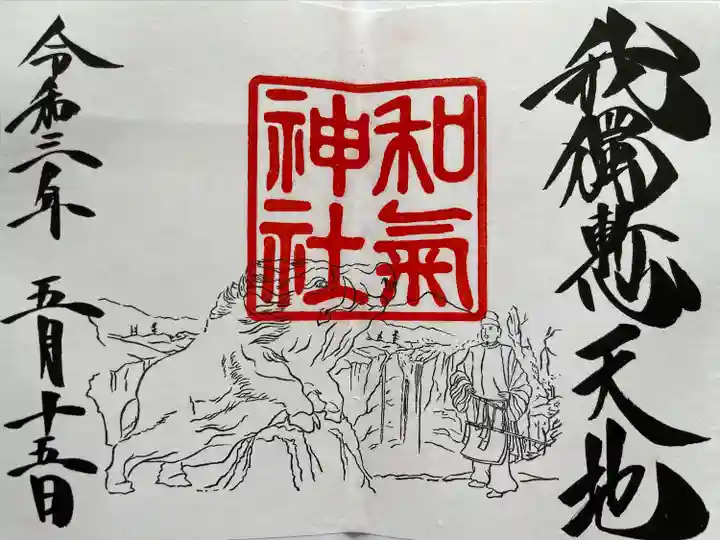 我獨慙天地
和氣
神社
令和三年 五月十五日